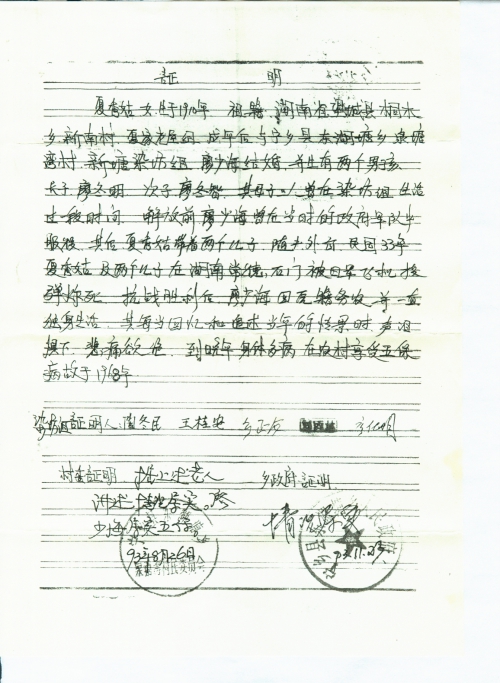 证 明
夏春姑 女 生于1910年 祖籍 湖南省 县 桐木
乡新南村 夏家老屋组 成年后与宁乡县东湖塘乡 泉塘
湾村 新塘染坊组 廖少海结婚 并生有两个男孩
长子廖冬明 次子廖冬智 其母子 人曾在染坊组生活
过一段时间 解放前廖少海曾在当时的政府军队
服役 其后夏春姑带着两个儿子随夫外向 民国33年
夏春姑及两个儿子在湖南常德石门被日军飞机投
弹炸死 抗战胜利后 廖少海回原籍务农 并一直
独身生活 其每当回忆和追述当年的情景时 声泪
俱下 悲痛欲绝 到晚年身体多病 在农村享受五保
病故于1968年
染坊组证明人 冬民 王桂安
村委证明 上述老人 乡政府证明
讲述 情况属实 廖
少海 享受五保 情况属实
93年8月26日 93.11.23